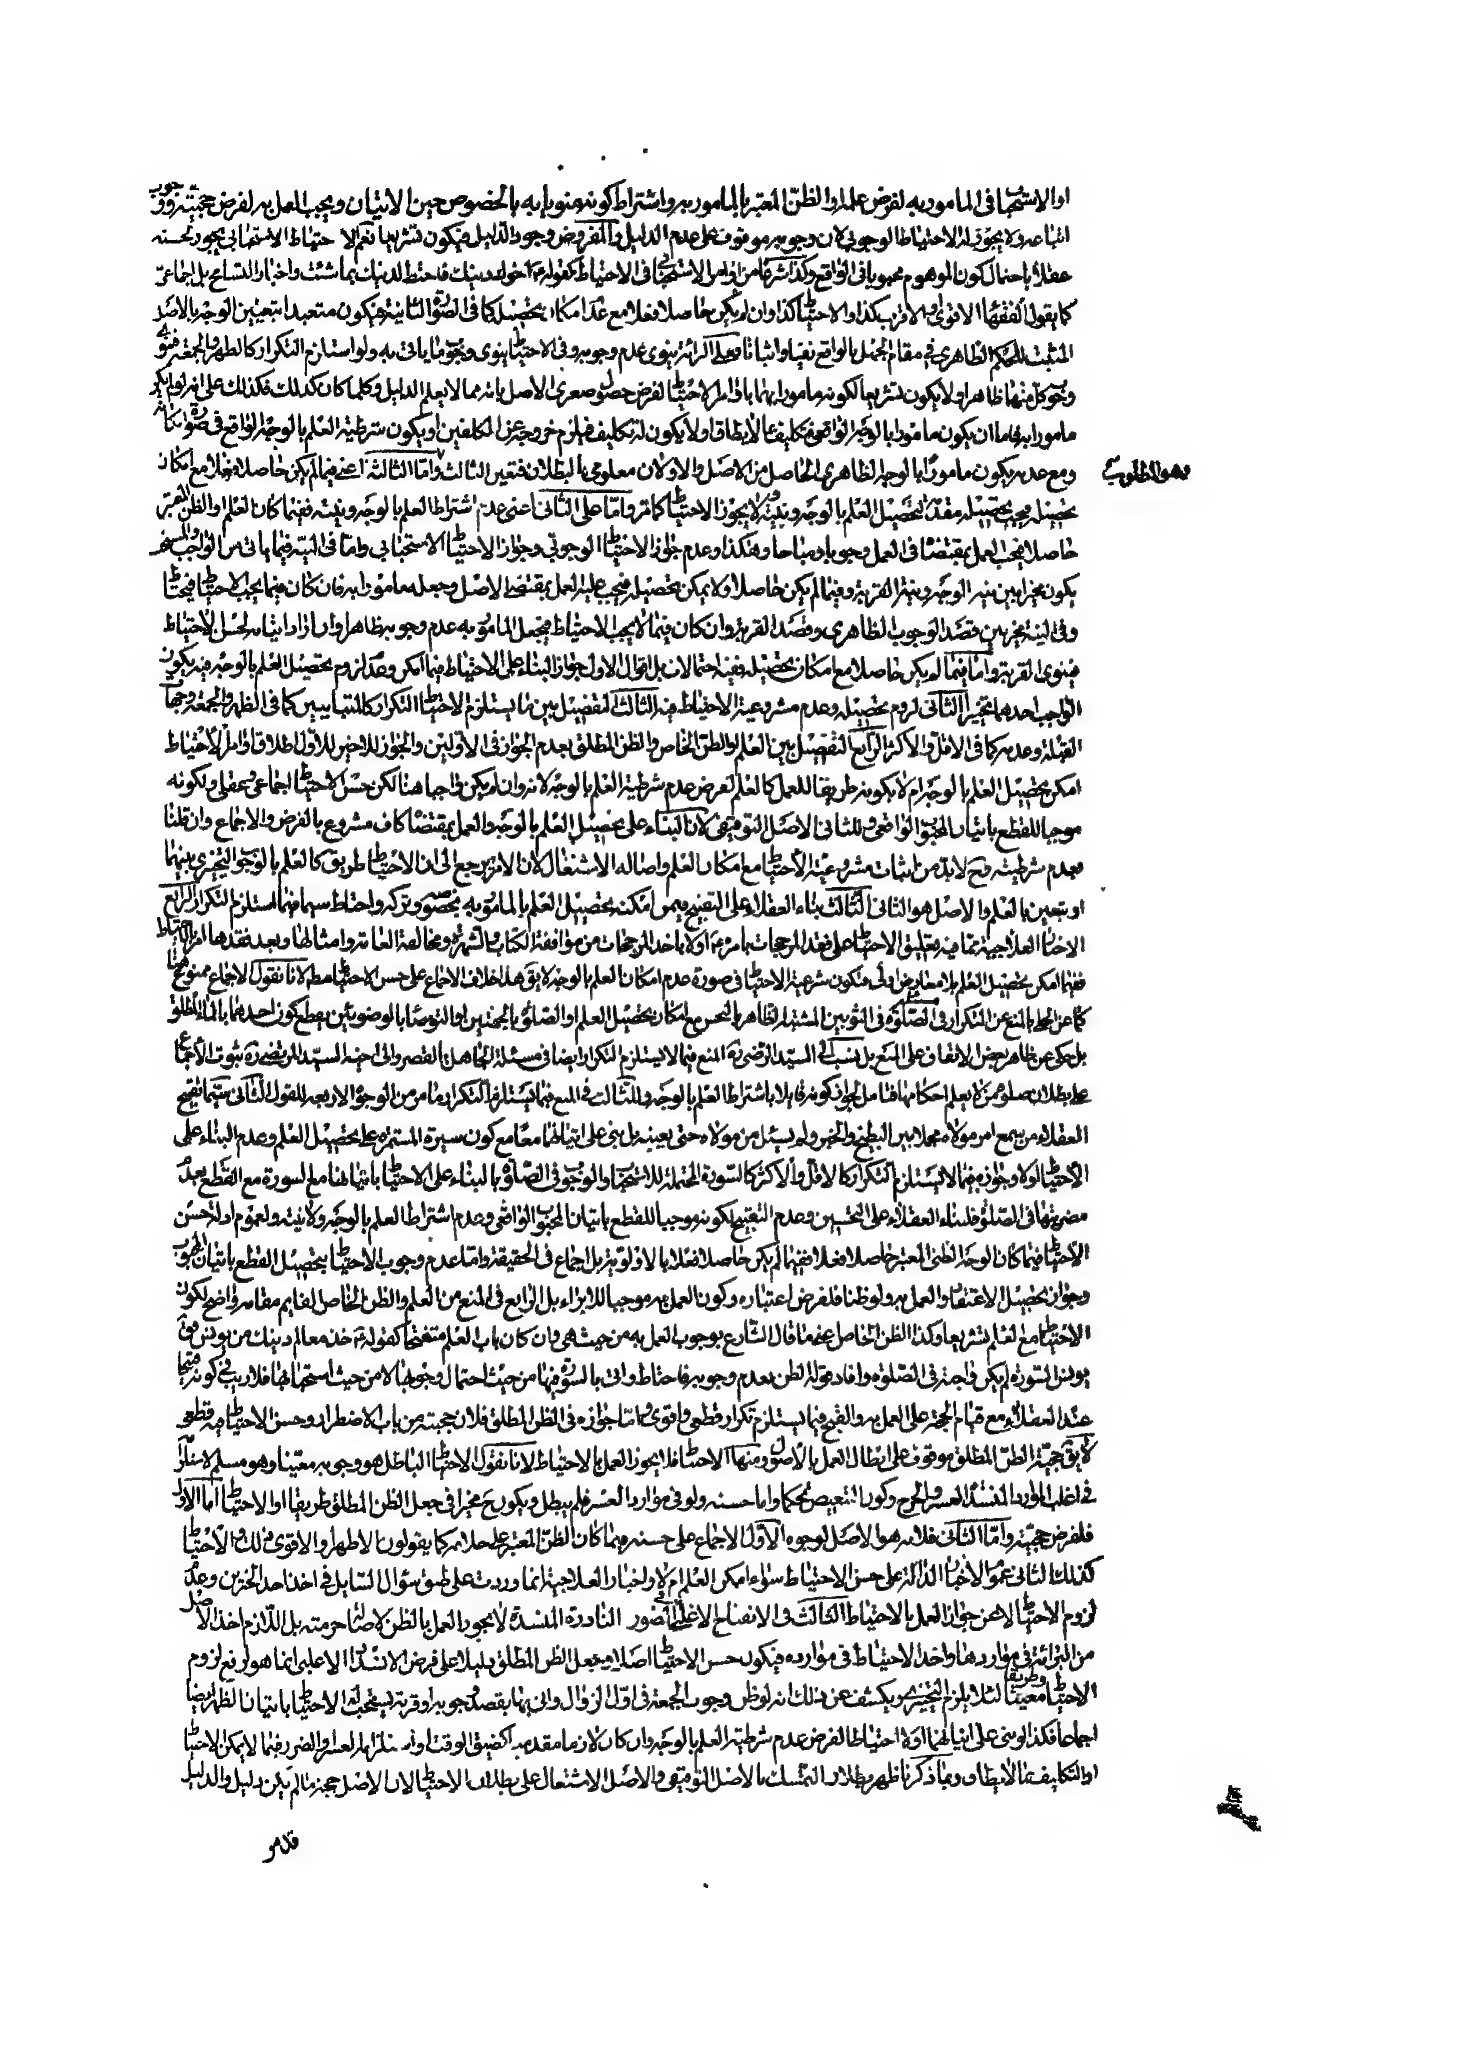 او الاستحبا فى المامور به لفرض علمه او الظن المعتبر بالمامور به واشتراط كونه منويا به بالخصوص حين الاتيان ويجب العمل به لفرض حجيته ووجوب
اتباعه ولا يجوز له الاحتياط الوجوبي لان وجوبه موقوف على عدم الدليل والمفروض وجود الدليل فيكون تشريعا نعم الاحتياط الاستحبابي يجوز لحسنه
عقلا باحتمال كون الموهوم محبوبا فى الواقع وكذا شرعا من اوامر الاستحبابى فى الاحتياط كقوله ع اخوك دينك فاحتط لدينك بما شئت واخبار التسامح بل اجماعا
كما يقول الفقهاء الاقوى او الاقرب كذا والاحتياط كذا وان لم يكن حاصلا فعلا مع عدم امكان تحصيله كما فى الصورة الثانية فيكون متعبدا بتعيين الوجه بالاصل
المثبت للحكم الظاهرى فى مقام الجهل بالواقع نفيا واثباتا وعلى البرائة ينوى عدم وجوبه وفى الاحتياط ينوى وجوب ما ياتى به ولو استلزم التكرار كالظهر والجمعة فينوى
وجوب كل منهما ظاهرا ولا يكون تشريعا لكونه مامورا بهما باوامر الاحتياط لفرض حصول صغرى الاصل بانه مما لا يعلم الدليل وكلما كان كذلك فكذلك على انه لو لم يكن
مامورا به فاما ان يكون مامورا بالوجه الواقعى فتكليف بما لا يطاق او لا يكون له تكليف فيلزم خروجه عن المكلفين او يكون شرطية العلم بالوجه الواقع فى صورة امكانه
ومع عدمه يكون مامورا بالوجه الظاهرى الحاصل من الاصل والاولان معلومى البطلان فتعين الثالث واما الثالثة اعنى فيما لم يكن حاصلا فعلا مع امكان
وهو المطلوب
تحصيله فيجب تحصيله مقدمة لتحصيل العلم بالوجه ونيته ولا يجوز الاحتياط كما مر واما على الثانى اعنى عدم اشتراط العلم بالوجه ونيته ففيما كان العلم او الظن المعتبر
حاصلا فيجب العمل بمقتضاه فى العمل وجوبا ومباحا وهكذا وعدم جواز الاحتياط الوجوبي وجواز الاحتياط الاستحبابي واما فى النية فيما ياتى من الواجب والمستحب
يكون مخيرا بين نية الوجه ونية القربة وفيما لم يكن حاصلا ولا يمكن تحصيله فيجب عليه العمل بمقتضى الاصل وجعله مامورا به فان كان فيما يجب الاحتياط فيحتاط
وفى النية مخير بين قصد الوجوب الظاهرى وقصد القربة وان كان فيما لا يجب الاحتياط فيجعل المامور به عدم وجوبه ظاهرا وان اراد اتيانه لحسن الاحتياط
فينوى القربة واما فيما لم يكن حاصلا مع امكان تحصيله ففيه احتمالات بل اقوال الاول جواز البناء على الاحتياط فيما امكن وعدم لزوم تحصيل العلم بالوجه فيه يكون
الواجب احدهما تخييرا الثانى لزوم تحصيله وعدم مشروعية الاحتياط فيه الثالث التفصيل بين ما يستلزم الاحتياط التكرار كالمتباينين كما فى الظهر والجمعة وجهات
القبلة وعدمه كما فى الاقل والاكثر الرابع التفصيل بين العلم والظن الخاص والظن المطلق بعدم الجواز فى الاولين والجواز للاخير للاول اطلاق اوامر الاحتياط
امكن تحصيل العلم بالوجه ام لا بكونه طريقا للعمل كالعلم لفرض عدم شرطية العلم بالوجه لانه وان لم يكن واجبا هنا لكن حسن الاحتياط اجماعى وعقلى ولكونه
موجبا للقطع باتيان المحبوب الواقعى وللثانى الاصل التوقيفى لان البناء على تحصيل العلم بالوجه والعمل بمقتضاه كاف مشروع بالفرض والاجماع وان قلنا
بعدم شرطيته وح لابد من اثبات مشروعية الاحتياط مع امكان العلم واصالة الاشتغال لان الامر يرجع الى ان الاحتياط طريق كالعلم بالوجه والتخيير بينهما
او يتعين بالعلم والاصل هو الثانى الثالث بناء العقلاء على التقبيح فيمن امكنه تحصيل العلم بالمامور به بخصوصه وتركه واحتاط سيما فيما استلزم التكرار الرابع
الاخبار العلاجية مما فيه تعليق الاحتياط على فقد المرجحات بامره ع اولا باخذ المرجحات من موافقة الكتاب والشهرة ومخالفة العامة وامثالها وبعد فقدها امر بالاحتياط
ففيما امكن تحصيل العلم بلا معارض اولى فتكون شرعية الاحتياط فى صورة عدم امكان العلم بالوجه لا يق هذا خلاف الاجماع على حسن الاحتياط مط لانا نقول الاجماع ممنوع هنا
كما عن الحلى المنع عن التكرار فى الصلوة فى الثوبين المشتبه الظاهر بالنجس مع امكان تحصيل العلم او الصلوة بالجهتين او التوضأ بالوضوئين يقطع كون احدهما بالماء المطلق
بل حكى عن ظاهر بعض الاتفاق على المنع بل نسب الى السيد الرضى ره المنع فيما لا يستلزم التكرار ايضا فى مسئلة الجاهل بالقصر والى اخيه السيد المرتضى ره ثبوت الاجماع
على بطلان صلوة من لا يعلم احكامها فتامل لجواز كونه قايلا باشتراط العلم بالوجه وللثالث فى المنع فيما يستلزم التكرار ما مر من الوجوه الاربعة للقول الثانى سيما تقبيح
العقلاء من سمع امر مولاه مجملا بين البطيخ والخبز ولم يسئل من مولاه حتى يعينه بل بنى على اتيانهما معا مع كون سيرة المستمرة على تحصيل العلم وعدم البناء على
الاحتياط اولا وجوازه فيما لا يستلزم التكرار كالاقل والاكثر كالسورة المحتملة للاستحباب والوجوب فى الصلوة بالبناء على الاحتياط باتيانها مع السورة مع القطع بعدم
مضريتها فى الصلوة فلبناء العقلاء على التحسين وعدم التقبيح لكونه موجبا للقطع باتيان المحبوب الواقعى وعدم اشتراط العلم بالوجه ولا نيته ولعموم ادلة حسن
الاحتياط فيما كان الوجه الظنى المعتبر حاصلا فعلا ففيما لم يكن حاصلا فعلا بالاولوية بل اجماع فى الحقيقة واما عدم وجوب الاحتياط بتحصيل القطع باتيان المحبوب
وجواز تحصيل الاعتقاد والعمل به ولو ظنا فلفرض اعتباره وكون العمل به موجبا للابراء بل الرابع فى المنع من العلم والظن الخاص القايم مقامه واضح لكون
الاحتياط مع العلم تشريعا وكذا الظن الخاص بعد ما قال الشارع بوجوب العمل به من حيث هى وان كان باب العلم منفتحا كقوله ع خذ معالم دينك من يونس وق
يونس السورة لم يكن واجبة فى الصلوة وافاد قوله الظن بعدم وجوبه فاحتاط واتى بالسورة فيها من حيث احتمال وجوبها لا من حيث استحبابها فلا ريب فى كونه قبيحا
عند العقلاء مع قيام الحجة على العمل به والقبح فيما يستلزم تكرار قطعى واقوى واما جوازه فى الظن المطلق فلان حجيته من باب الاضطرار وحسن الاحتياط فيه قطعى
لا يق حجية الظن المطلق موقوف على ابطال العمل بالاصول ومنها الاحتياط فلا يجوز العمل بالاحتياط لانا نقول الاحتياط الباطل هو وجوبه معينا وهو مسلم لاستلزامه
فى اغلب الموارد المنسدة العسر والحرج وكون التبعيض تحكما واما حسنه ولو فى موارد العسر فلم يبطل ويكون ح مخيرا فى جعل الظن المطلق طريقا او الاحتياط اما الاول
فلفرض حجيته واما الثانى فلانه هو الاصل لوجوه الاول الاجماع على حسنه فيما كان الظن المعتبر على خلافه كما يقولون الاظهر او الاقوى ذلك والاحتياط
كذلك الثانى عموم الاخبار الدالة على حسن الاحتياط سواء امكن العلم ام لا واخبار العلاجية انما وردت على طبق سؤال السايل فى اخذ احد الخبرين وعدم
لزوم الاحتياط لا عن جواز العمل بالاحتياط الثالث فى الانفتاح الاغلبى فى الصور النادرة المنسدة لا يجوز العمل بالظن لاصالة حرمته بل اللازم اخذ الاصل
من البرائة فى مواردها واخذ الاحتياط فى موارده فيكون حسن الاحتياط اصلا وجعل الظن المطلق دليلا على فرض الانسداد الاغلبى انما هو لرفع لزوم
الاحتياط معينا وطريقا لئلا يلزم التخيير ويكشف عن ذلك انه لو ظن وجوب الجمعة فى اول الزوال واتى بها بقصد وجوبه او قربة يستحب له الاحتياط باتيان الظهر ايضا
اجماعا فكذا لو بنى على اتيانهما اولا احتياطا لفرض عدم شرطية العلم بالوجه وان كان لازما مقدمة كضيق الوقت او استلزامه العسر او الضرر فيما لا يمكن الاحتياط
او التكليف بما لا يطاق وبما ذكرنا ظهر بطلان التمسك بالاصل التوقيفى والاصل الاشتغال على بطلان الاحتياط لان الاصل حجة ما لم يكن دليل والدليل
قد مر